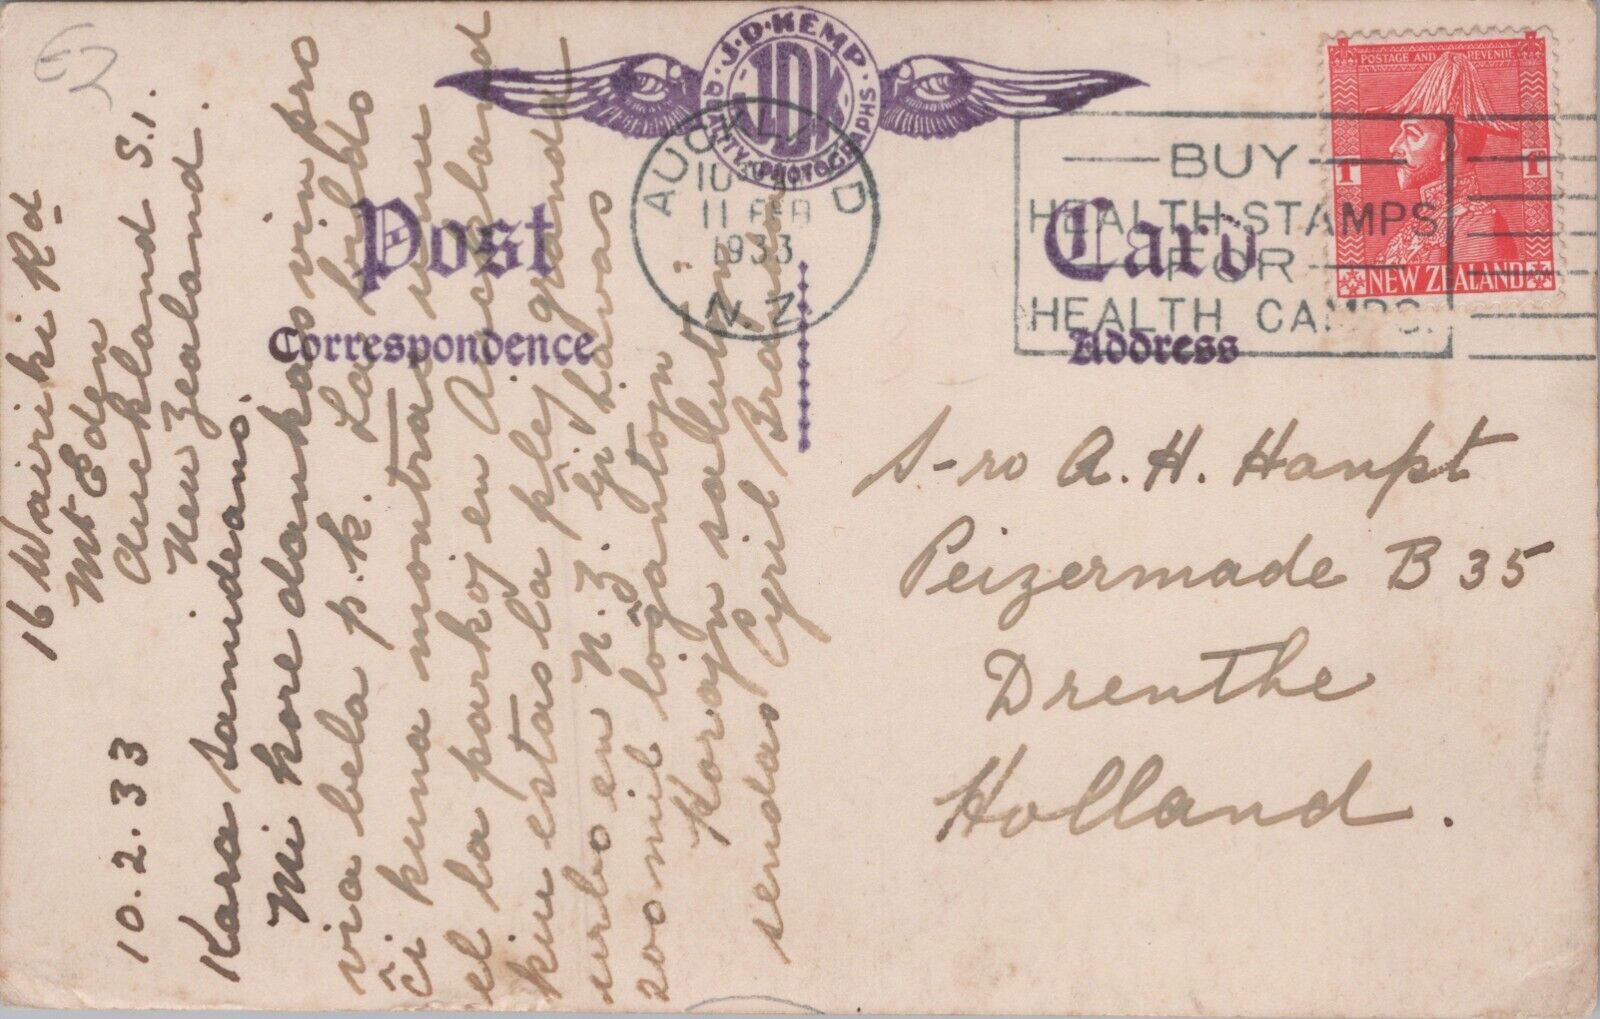 J·D·KEMP
JDK
QUALITY PHOTOGRAPHS
Post Card
Correspondence
Address
AUCKLAND
11 FEB
1933
N.Z.
BUY
HEALTH STAMPS
FOR
HEALTH CAMPS.
POSTAGE AND REVENUE
1 1
NEW ZEALAND
16 Wairiki Rd
Mt Eden
Auckland S.1.
New Zealand.
10.2.33
Kara samideano.
Mi kore dankas vin pro
via bela p.k. La bildo
ĉi kuna montras unu
el la parkoj en Auckland
kiu estas la plej granda
urbo en N.Z. Ĝi havas
200 mil loĝantojn
Korajn salutojn
sendas Cyril
S-ro A. H. Haupt
Peizermade B 35
Drenthe
Holland.